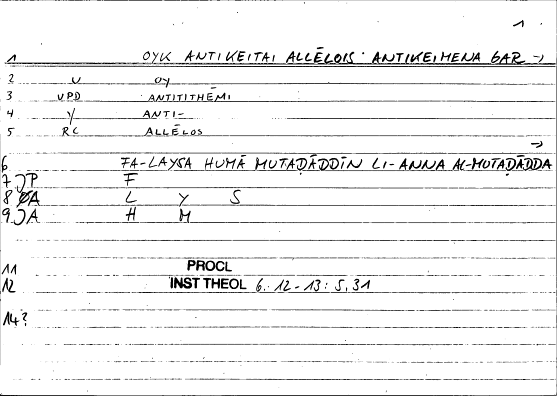 1
1 OYK ANTIKEITAI ALLĒLOIS · ANTIKEIMENA GAR →
2 U OY
3 UPD ANTITITHĒMI
4 Y ANTI-
5 RC ALLĒLOS
→
6 FA-LAYSA HUMĀ MUTAḌĀDDĪN LI-ANNA AL-MUTAḌĀDDA
7 JP F
8 JA L Y S
9 JA H M
11 PROCL
12 INST THEOL 6. 12-13: 5,31
14?